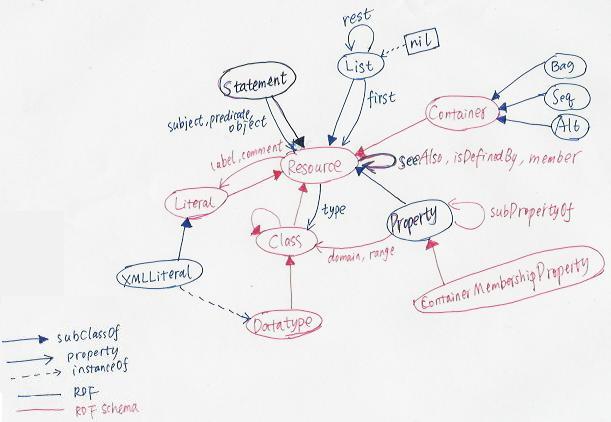 rest
nil
List
Bag
Statement
Seq
first
Container
subject, predicate,
object
Alt
label, comment
Resource
seeAlso, isDefinedBy, member
Literal
type
Property
subPropertyOf
Class
domain, range
XMLLiteral
ContainerMembershipProperty
Datatype
subClassOf
property
instanceOf
RDF
RDF Schema